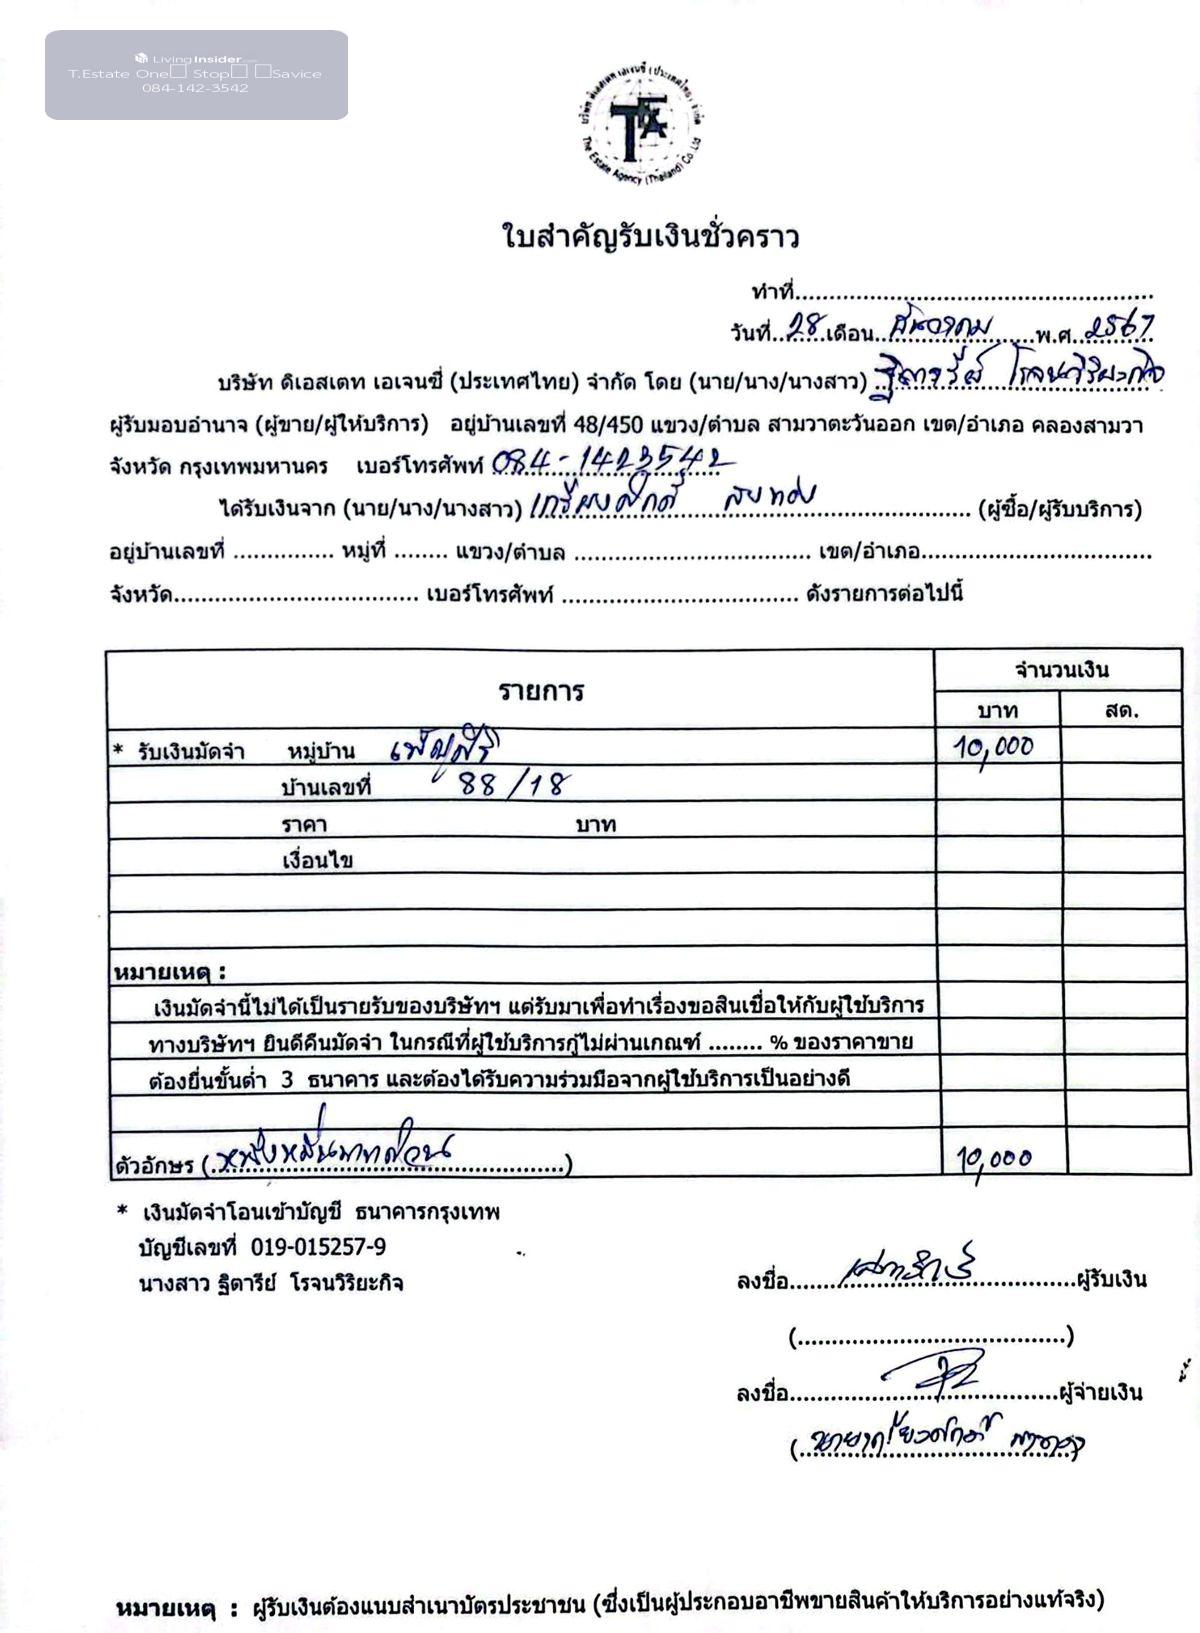 LivingInsider.com
T.Estate One□ Stop□ □Savice
084-142-3542
บริษัท ดิเอสเตท เอเจนซี่ (ประเทศไทย) จำกัด
TEA
The Estate Agency (Thailand) Co.,Ltd
ใบสำคัญรับเงินชั่วคราว
ทำที่
วันที่ 28 เดือน ธันวาคม พ.ศ. 2567
บริษัท ดิเอสเตท เอเจนซี่ (ประเทศไทย) จำกัด โดย (นาย/นาง/นางสาว) ฐิตารีย์ โรจนวิริยะกิจ
ผู้รับมอบอำนาจ (ผู้ขาย/ผู้ให้บริการ) อยู่บ้านเลขที่ 48/450 แขวง/ตำบล สามวาตะวันออก เขต/อำเภอ คลองสามวา
จังหวัด กรุงเทพมหานคร เบอร์โทรศัพท์ 084-1423542
ได้รับเงินจาก (นาย/นาง/นางสาว) เกรียงศักดิ์ (ผู้ซื้อ/ผู้รับบริการ)
อยู่บ้านเลขที่ ............... หมู่ที่ ........ แขวง/ตำบล ................................... เขต/อำเภอ...................................
จังหวัด.................................... เบอร์โทรศัพท์ ................................... ดังรายการต่อไปนี้
รายการ จำนวนเงิน
บาท สต.
* รับเงินมัดจำ หมู่บ้าน เพ็ญศิริ 10,000
บ้านเลขที่ 88/18
ราคา บาท
เงื่อนไข
หมายเหตุ :
เงินมัดจำนี้ไม่ได้เป็นรายรับของบริษัทฯ แต่รับมาเพื่อทำเรื่องขอสินเชื่อให้กับผู้ใช้บริการ
ทางบริษัทฯ ยินดีคืนมัดจำ ในกรณีที่ผู้ใช้บริการกู้ไม่ผ่านเกณฑ์ ........ % ของราคาขาย
ต้องยื่นขั้นต่ำ 3 ธนาคาร และต้องได้รับความร่วมมือจากผู้ใช้บริการเป็นอย่างดี
ตัวอักษร (หนึ่งหมื่นบาทถ้วน) 10,000
* เงินมัดจำโอนเข้าบัญชี ธนาคารกรุงเทพ
บัญชีเลขที่ 019-015257-9
นางสาว ฐิตารีย์ โรจนวิริยะกิจ
ลงชื่อ ผู้รับเงิน
(........................................)
ลงชื่อ ผู้จ่ายเงิน
(นายเกรียงศักดิ์)
หมายเหตุ : ผู้รับเงินต้องแนบสำเนาบัตรประชาชน (ซึ่งเป็นผู้ประกอบอาชีพขายสินค้าให้บริการอย่างแท้จริง)